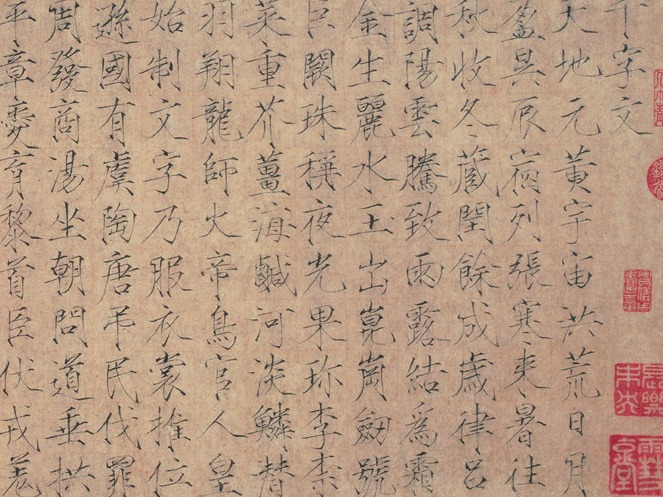 千字文
天地元黃宇宙洪荒日月
盈昃辰宿列張寒來暑往
秋收冬藏閏餘成歲律呂
調陽雲騰致雨露結爲霜
金生麗水玉出崑崗劔號
巨闕珠稱夜光果珍李柰
菜重芥薑海鹹河淡鱗潛
羽翔龍師火帝鳥官人皇
始制文字乃服衣裳推位
遜國有虞陶唐弔民伐罪
周發商湯坐朝問道垂拱
平章愛育黎首臣伏戎羌